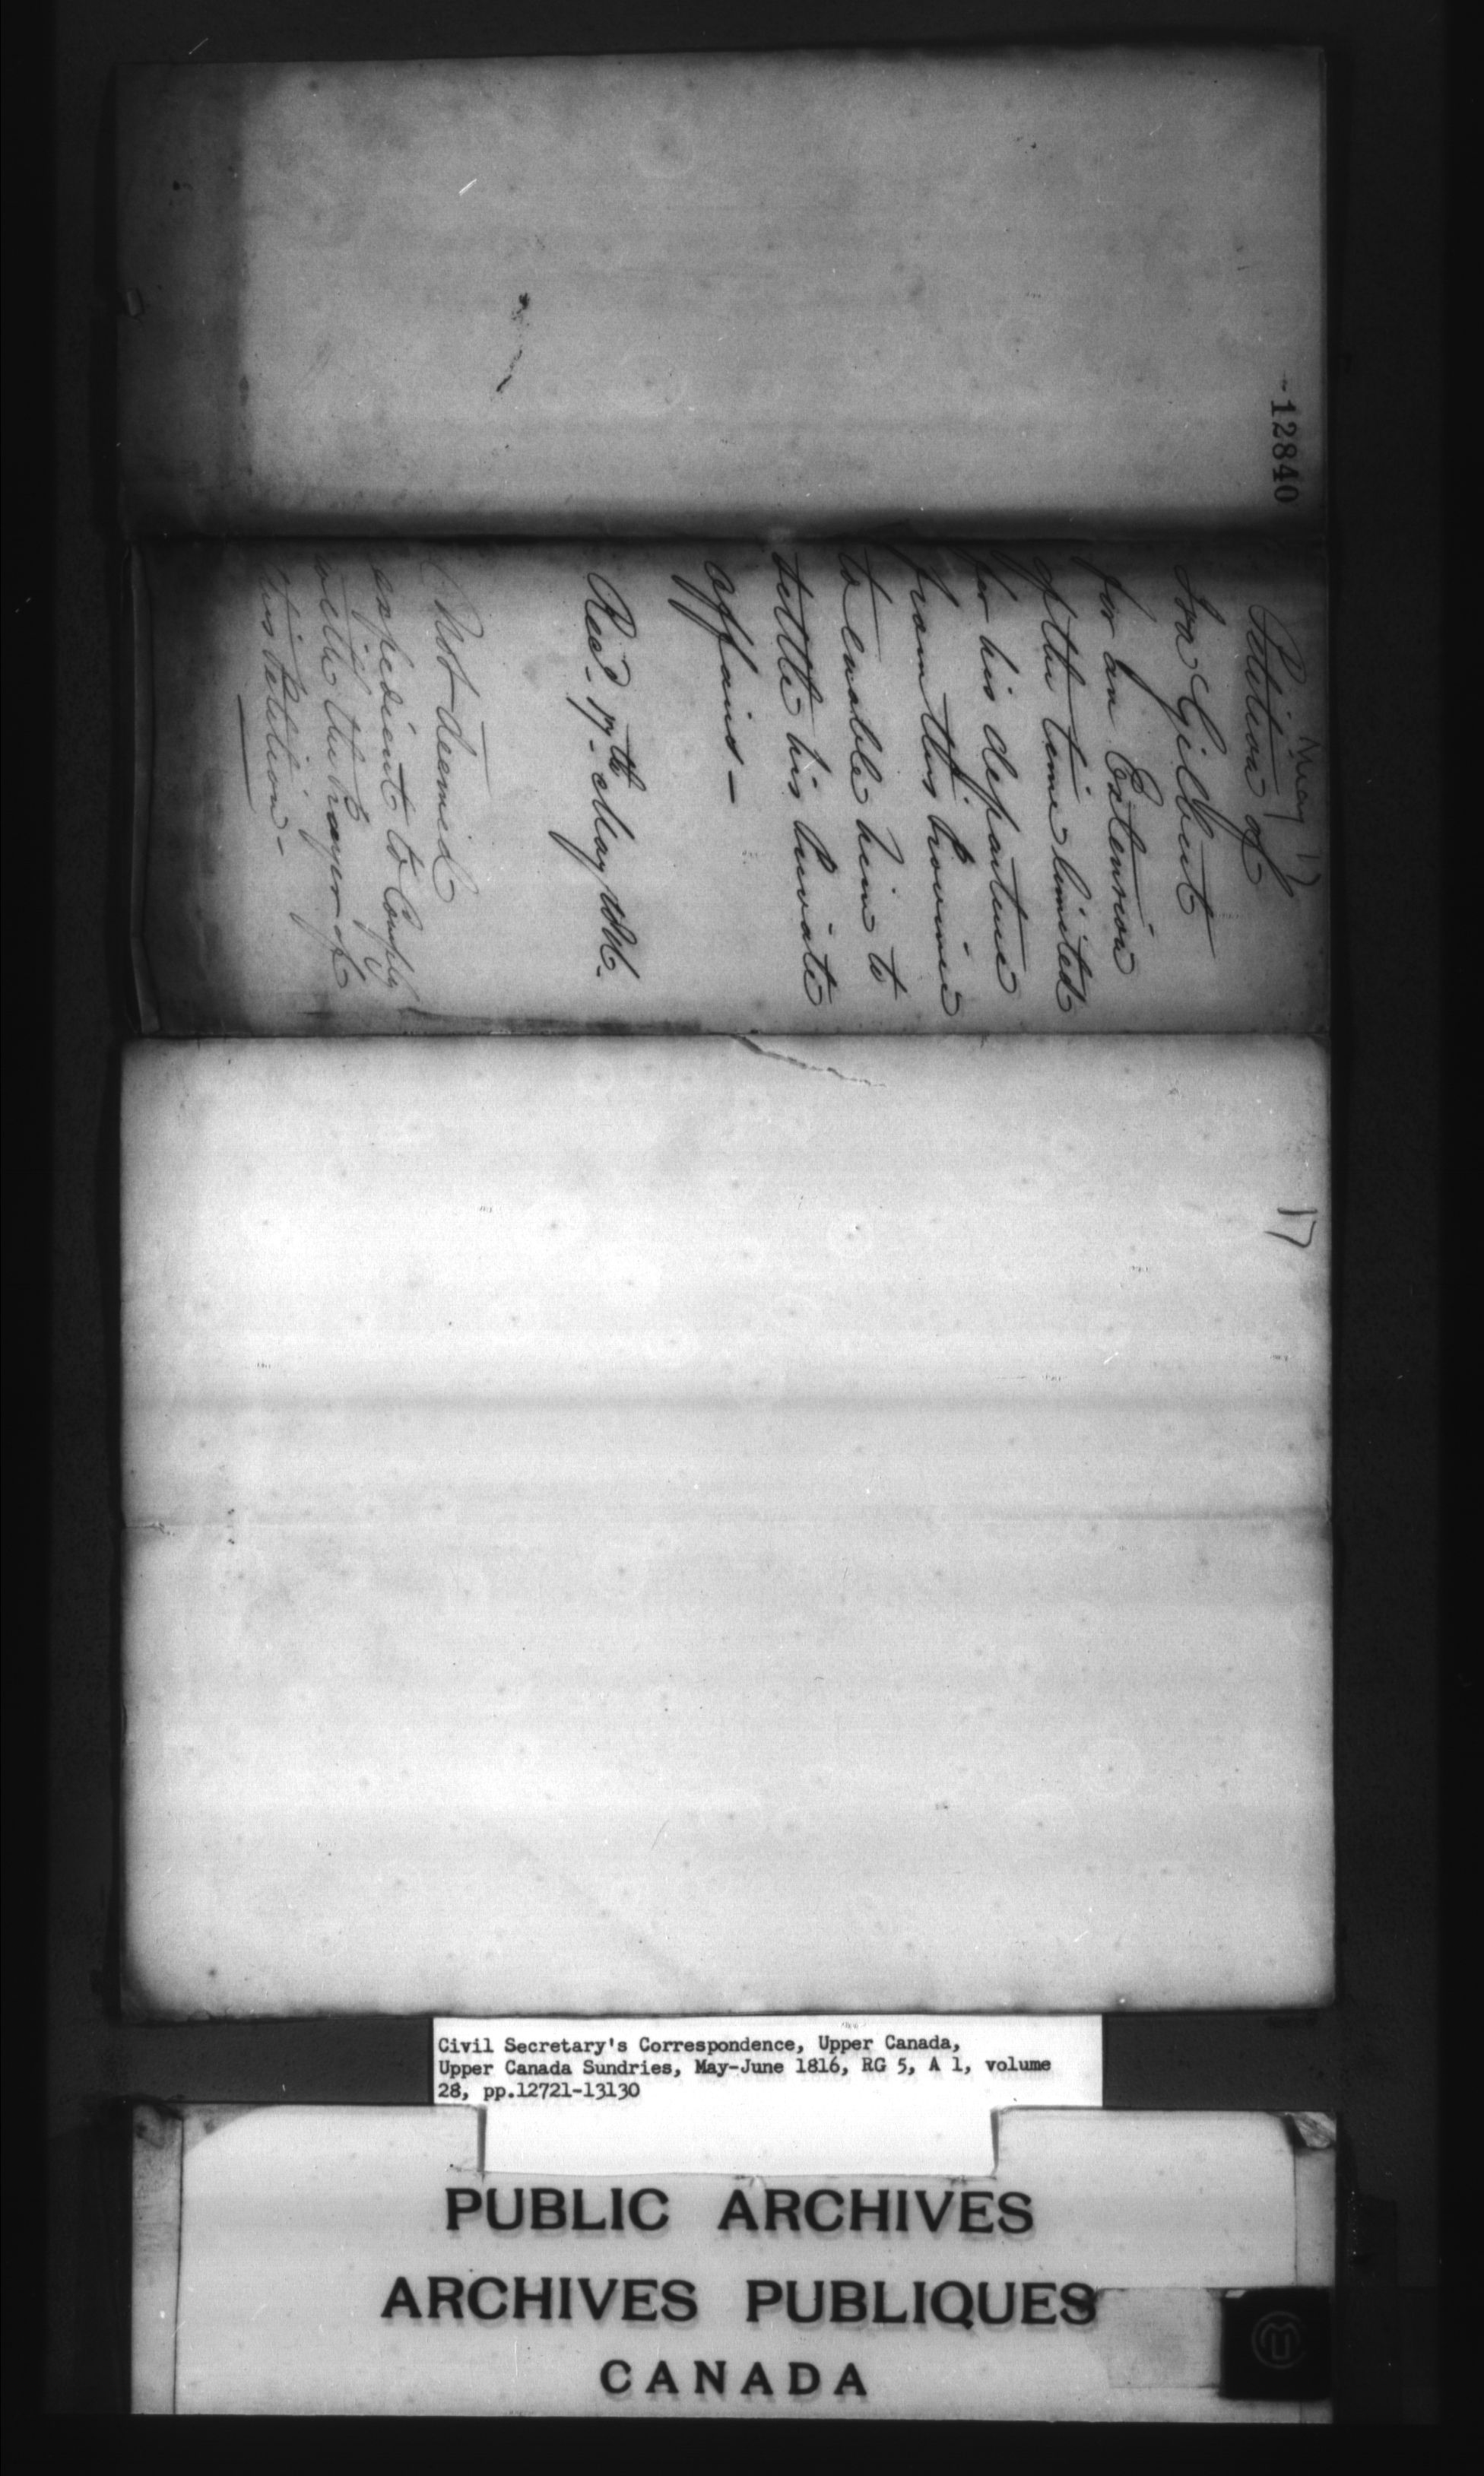 12840
May 17
Petition of
Ira Gilbert
for an Extension
of the time limited
for his departure
from this Province
to enable him to
settle his private
affairs -
Recd. 17th May 1816.
Not deemed
expedient to Comply
with the Prayer of
this Petition -
17
Civil Secretary's Correspondence, Upper Canada,
Upper Canada Sundries, May-June 1816, RG 5, A 1, volume
28, pp.12721-13130
PUBLIC ARCHIVES
ARCHIVES PUBLIQUES
CANADA